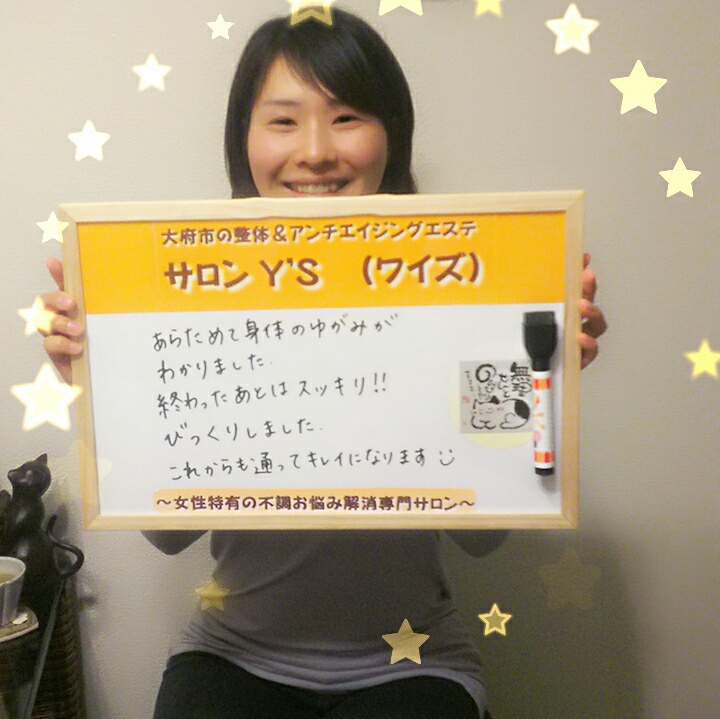 大府市の整体＆アンチエイジングエステ
サロン Y'S （ワイズ）
あらためて身体のゆがみが
わかりました.
終わったあとはスッキリ!!
びっくりしました.
これからも通ってキレイになります
～女性特有の不調お悩み解消専門サロン～